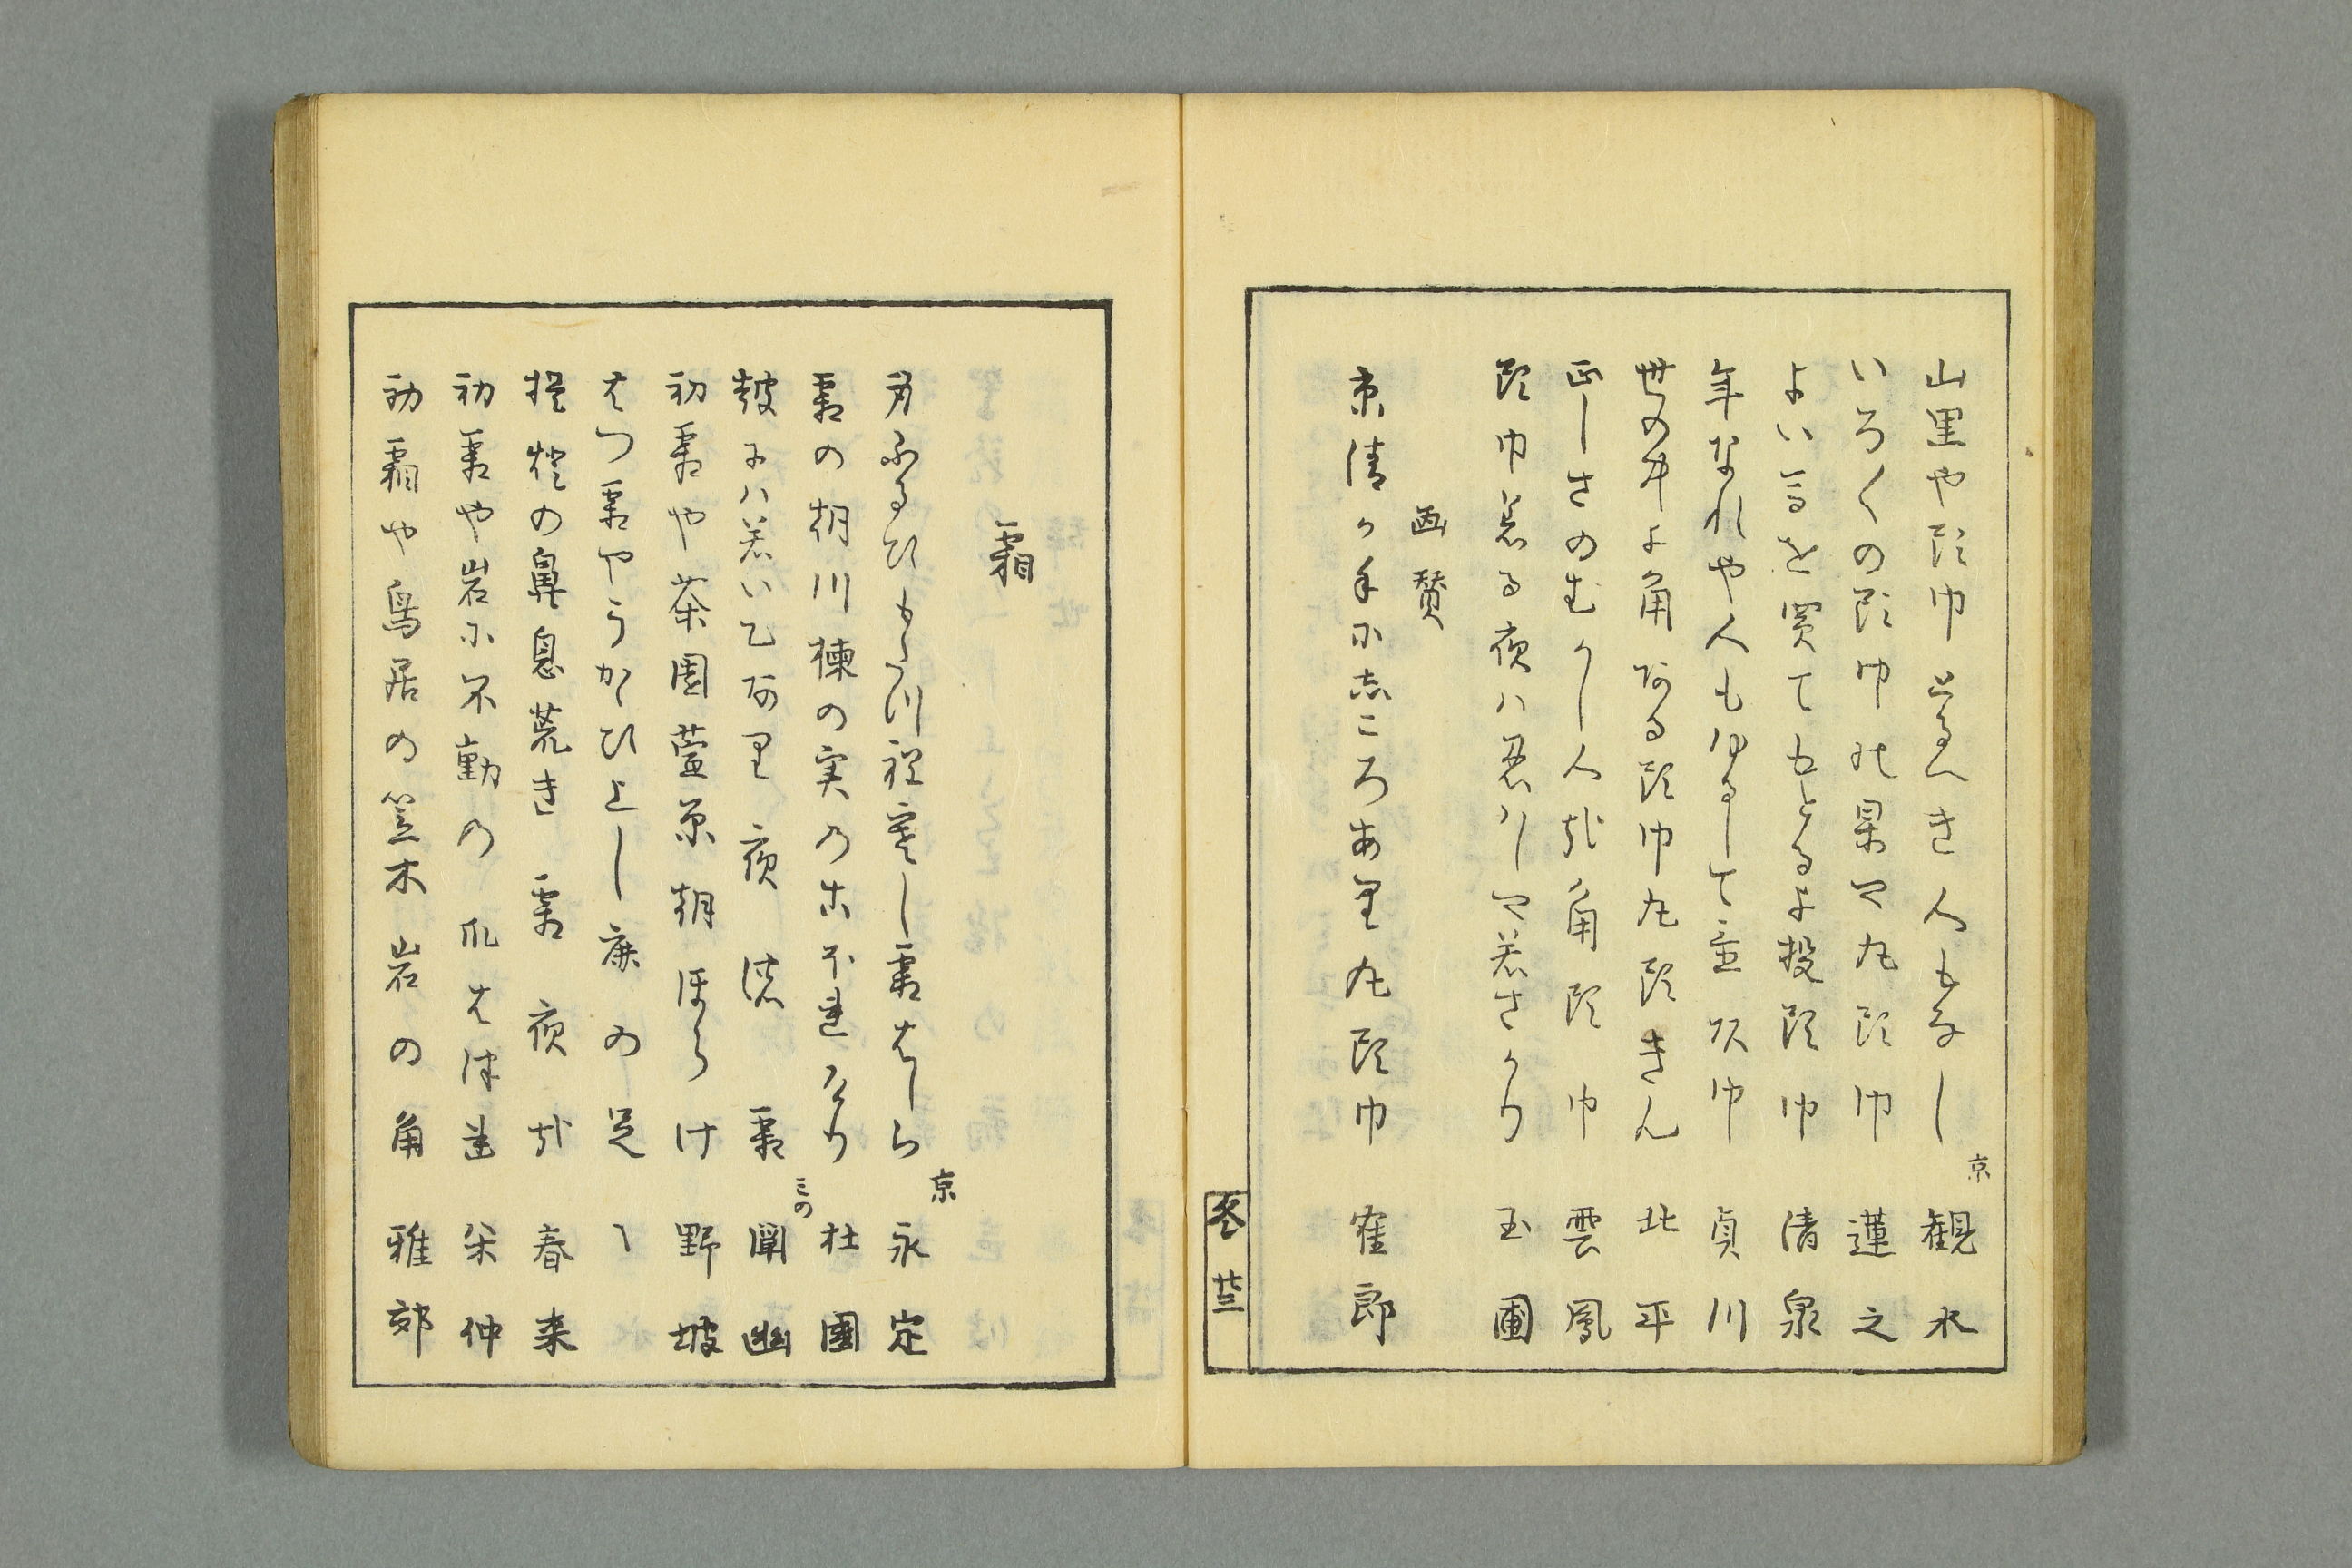 山里や頭巾とるへき人もなし 京 観水
いろ〱の頭巾の果や丸頭巾 蓮之
よい事を笑てもとるよ投頭巾 清泉
年なれや人もゆるして置頭巾 貞川
世の中よ角ある頭巾丸頭きん 北平
正しさのむかし人哉角頭巾 雲鳳
頭巾着る夜ハ忍ハしや若さかり 玉圃
画賛
景清か手にこゝろあり丸頭巾 雀郎
冬 廿三
霜
身ふるひもうつ程寒し霜はしら 京 永定
霜の朝川棟の実のこほれけり 杜園
鼓にハ若い乙あり夜の霜 みの 闌幽
初霜や茶園萱原朝ほらけ 野坡
はつ霜やうかひ上し鹿の足 〃
挑燈の鼻息荒き霜夜哉 春来
初霜や岩に不動の爪はしき 朶仲
初霜や鳥居の笠木岩の角 雅郊